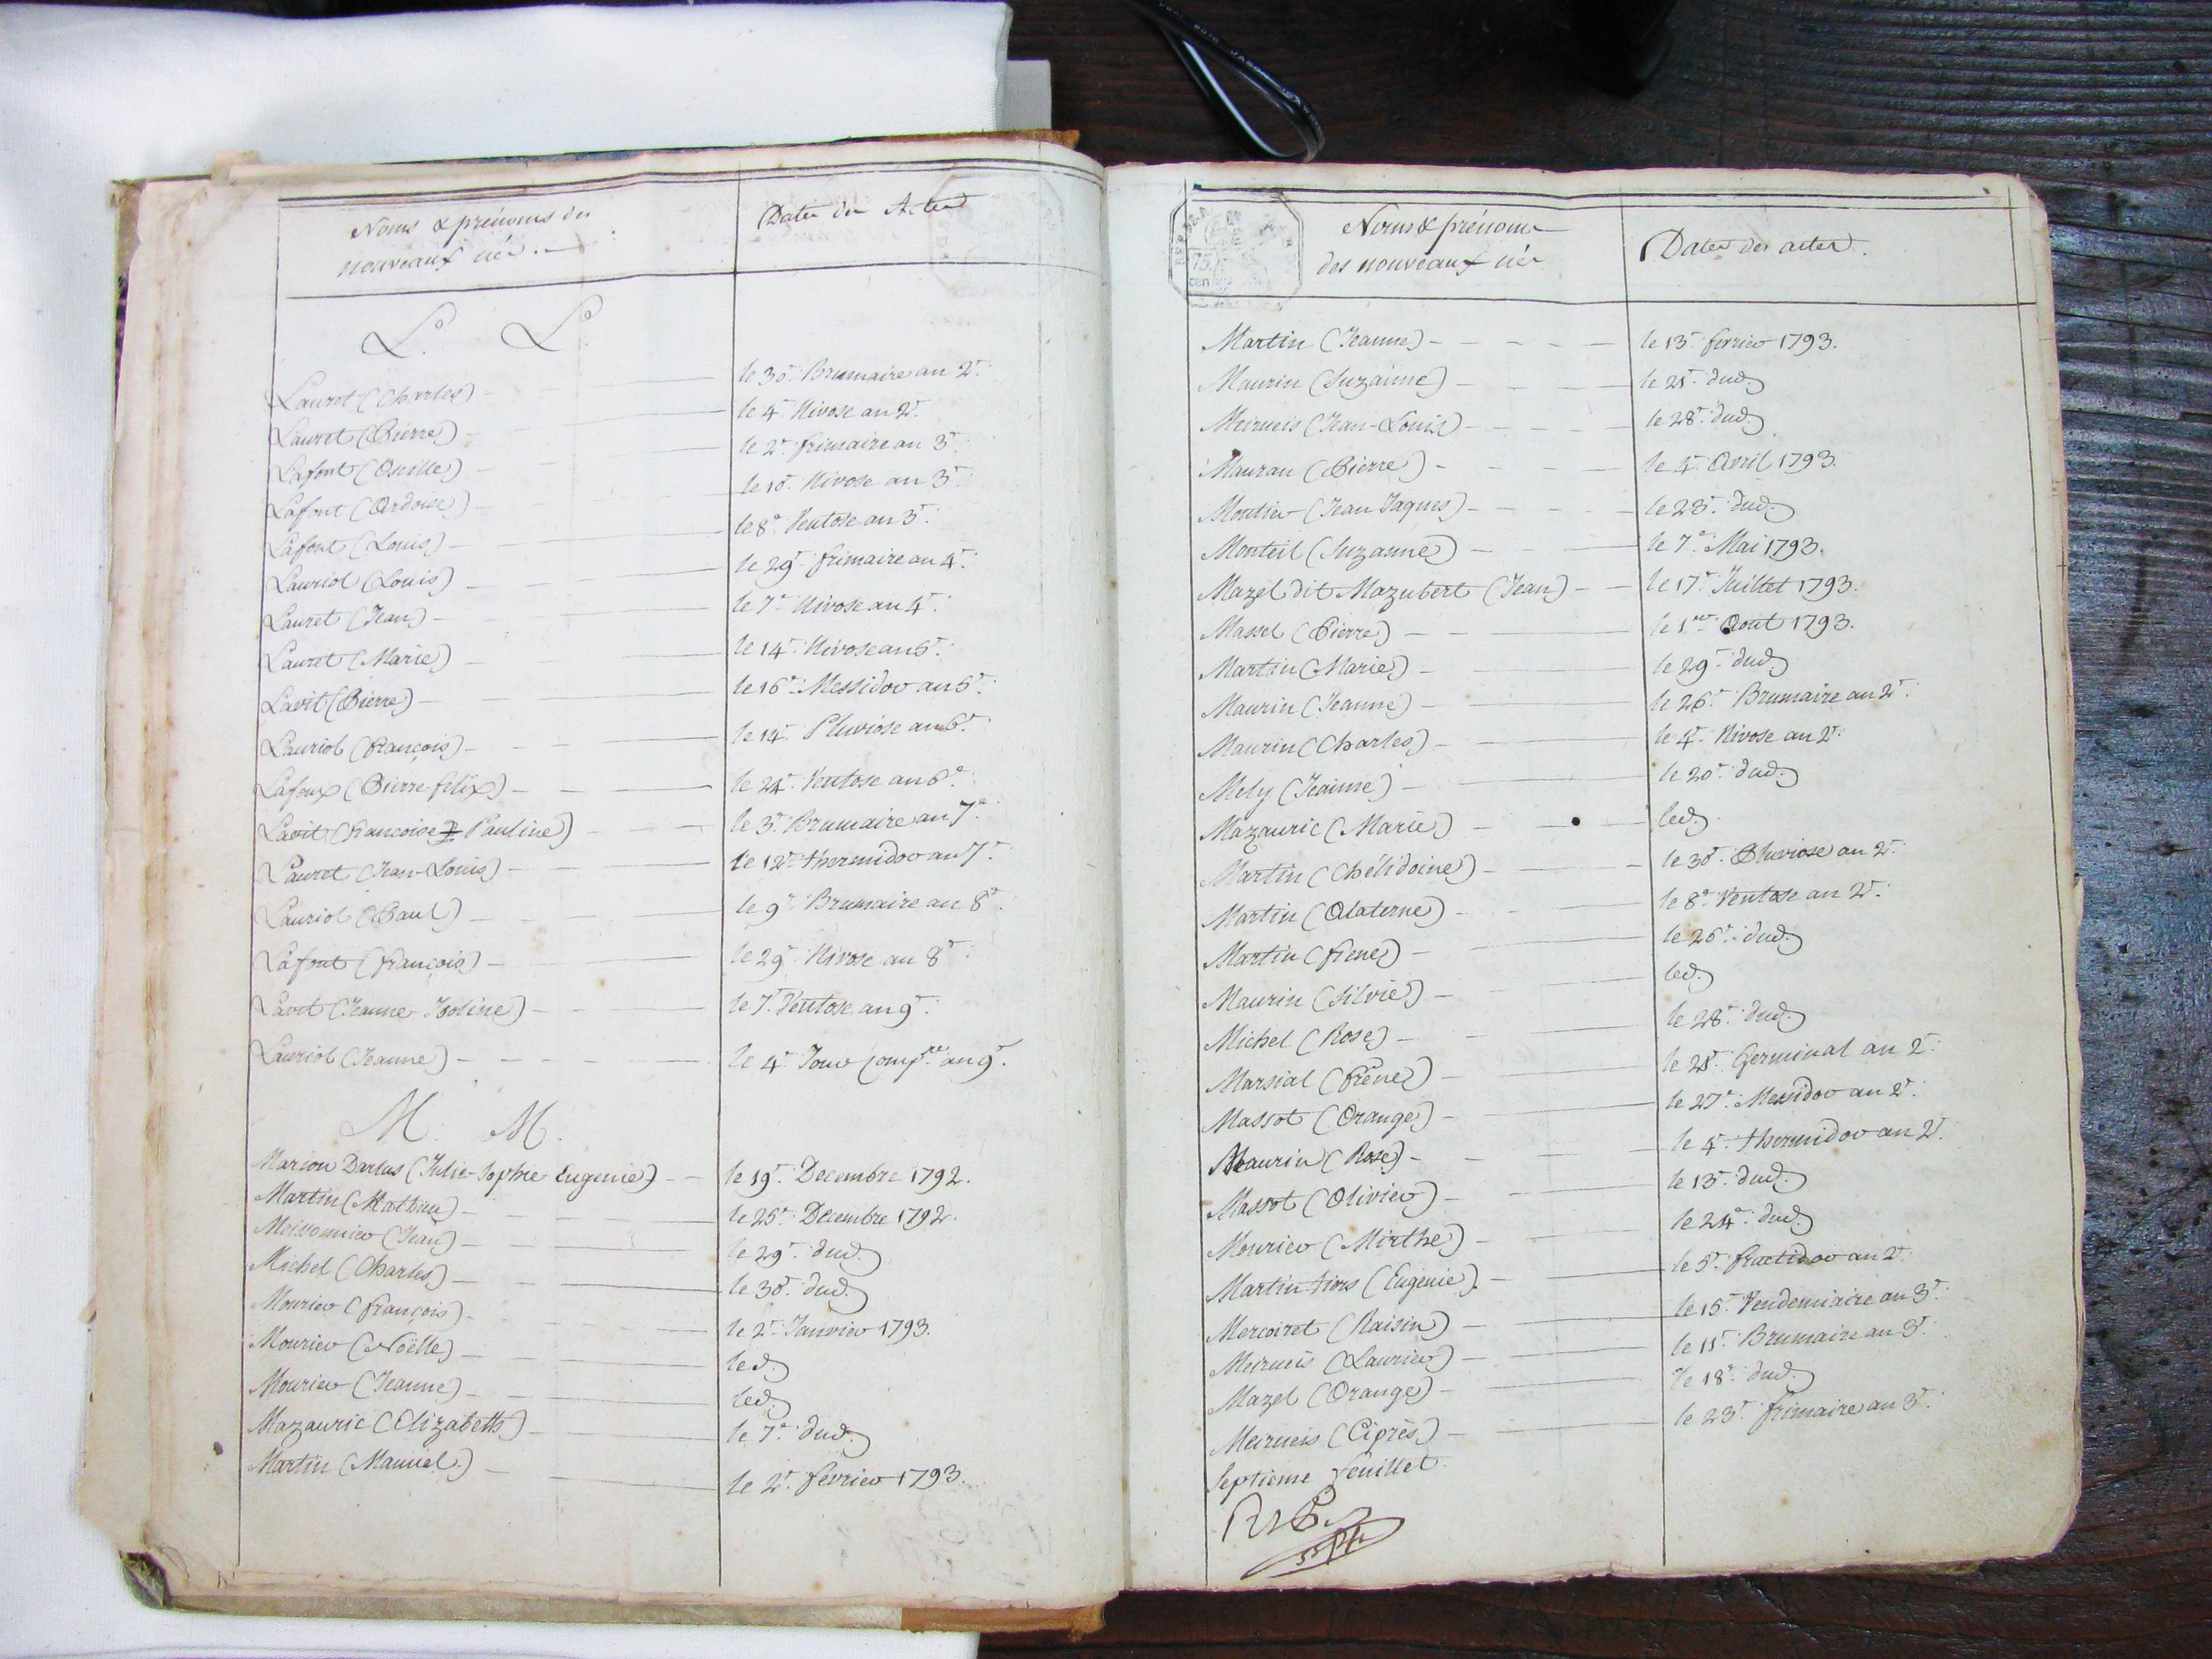 Noms & prénoms des
nouveaux nés.
Dates des Actes
L. L.
Lauret (Charles) le 30e. Brumaire an 2e.
Lauret (Pierre) le 4e. Nivose an 2e.
Lafont (Osille) le 2e. frimaire an 3e.
Lafont (Ardoise) le 10e. Nivose an 3e.
Lafont (Louis) le 8e. Ventose an 3e.
Lauriol (Louis) le 29e. frimaire an 4e.
Lauret (Jean) le 7e. Nivose an 4e.
Lauret (Marie) le 14e. Nivose an 5e.
Lavit (Pierre) le 16e. Messidor an 5e.
Lauriol (François) le 14e. Pluviose an 6e.
Lafoux (Pierre felix) le 24e. Ventose an 6e.
Lavit (francoise Pauline) le 3e. Brumaire an 7e.
Lauret (Jean-Louis) le 12e. thermidor an 7e.
Lauriol (Paul) le 9e. Brumaire an 8e.
Lafont (François) le 29e. Nivose an 8e.
Lavit (Jeanne-Isoline) le 7e. Ventose an 9e.
Lauriol (Jeanne) le 4e. Jour Compre. an 9e.
M. M.
Marion Darlas (Julie-Sophie Eugenie) le 19e. Decembre 1792.
Martin (Mathieu) le 25e. Decembre 1792.
Meissonnier (Jean) le 29e. dud.
Michel (Charles) le 30e. dud.
Mourier (François) le 2e. Janvier 1793.
Mourier (Noëlle) led.
Mourier (Jeanne) led.
Mazauric (Elizabeth) le 7e. dud.
Martin (Manuel) le 2e. fevrier 1793.
75
cen
Noms & prénoms
des nouveaux nés
Dates des actes.
Martin (Jeanne) le 13e. fevrier 1793.
Maurin (Suzanne) le 25e. dud.
Meirueis (Jean-Louis) le 28e. dud.
Mauran (Pierre) le 4e. Avril 1793.
Moutier (Jean Jaques) le 23e. dud.
Monteil (Suzanne) le 7e. Mai 1793.
Mazel dit Mazubert (Jean) le 17e. Juillet 1793.
Massel (Pierre) le 1er. Aout 1793.
Martin (Marie) le 29e. dud.
Maurin (Jeanne) le 26e. Brumaire an 2e.
Maurin (Charles) le 4e. Nivose an 2e.
Mely (Jeanne) le 20e. dud.
Mazauric (Marie) led.
Martin (Chélidoine) le 30e. Pluviose an 2e.
Martin (Alaterne) le 8e. Ventose an 2e.
Martin (frene) le 26e. dud.
Maurin (Silvie) led.
Michel (Rose) le 28e. dud.
Marsial (Frêne) le 25e. Germinal an 2e.
Massot (Orange) le 27e. Messidor an 2e.
Maurin (Rose) le 4e. thermidor an 2e.
Massot (Olivier) le 13e. dud.
Mourier (Mirthe) le 24e. dud.
Martin fions (Eugenie) le 5e. fructidor an 2e.
Mercoiret (Raisin) le 15e. Vendemiaire an 3e.
Meirueis (Laurier) le 15e. Brumaire an 3e.
Mazel (Orange) le 18e. dud.
Meirueis (Ciprès) le 23e. frimaire an 3e.
Septieme feuillet.